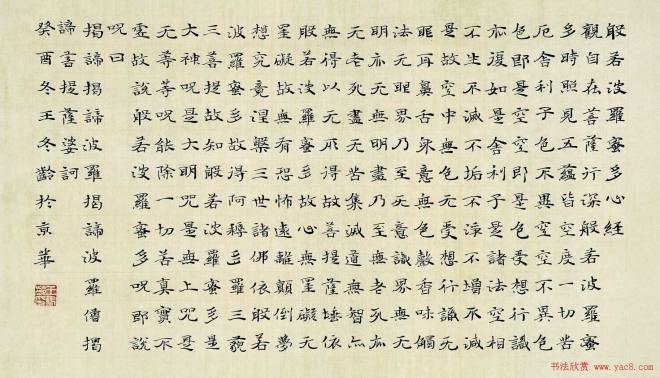 般若波羅蜜多心經
觀自在菩薩行深般若波羅蜜
多時照見五蘊皆空度一切苦
厄舍利子色不異空空不異色
色即是空空即是色受想行識
亦復如是舍利子是諸法空相
不生不滅不垢不淨不增不減
是故空中無色无受想行識无
眼耳鼻舌身意無色聲香味觸
法无眼界乃至无意識界無无
明亦无無明盡乃至無老死亦
无老死盡无苦集滅道無智亦
無得以无所得故菩提薩埵依
般若波羅蜜多故心無罣礙无
罣礙故無有恐怖遠離顛倒夢
想究竟涅槃三世諸佛依般若
波羅蜜多故得阿耨多羅三藐
三菩提故知般若波羅蜜多是
大神呪是大明呪是無上呪是
无等等呪能除一切苦真實不
虛故說般若波羅蜜多呪即說
呪曰
揭諦揭諦波羅揭諦波羅僧揭
諦菩提薩婆訶
癸酉冬王冬齡於京華
书法欣赏
www.yac8.com